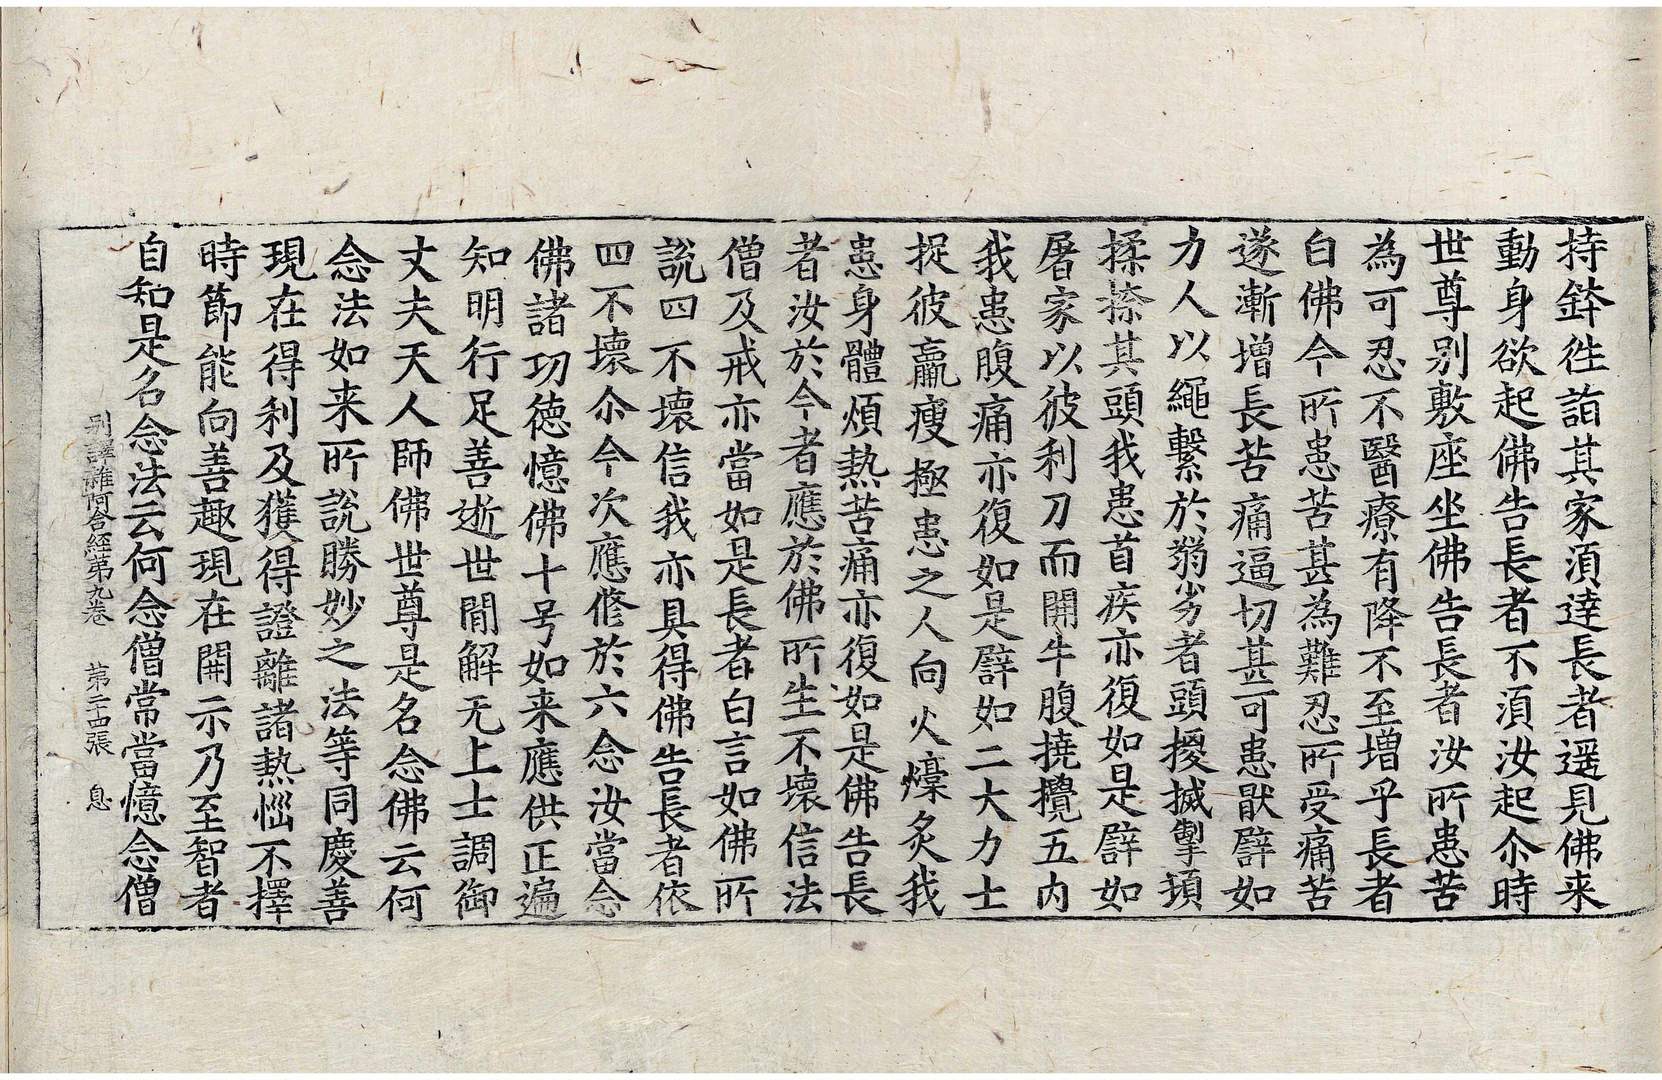 持鉢徃詣其家須達長者遥見佛来
動身欲起佛告長者不湏汝起尒時
世尊別敷座坐佛告長者汝所患苦
為可忍不醫療有降不至增乎長者
白佛今所患苦甚為難忍所受痛苦
遂漸增長苦痛逼切甚可患猒譬如
力人以繩繫於弱劣者頭擾搣掣頓
揉捺其頭我患首疾亦復如是譬如
屠家以彼利刀而開牛腹撓攪五内
我患腹痛亦復如是譬如二大力士
捉彼羸瘦極患之人向火爐炙我
患身體煩熱苦痛亦復如是佛告長
者汝於今者應於佛所生不壞信法
僧及戒亦當如是長者白言如佛所
說四不壞信我亦具得佛告長者依
四不壞尒今次應俢於六念汝當念
佛諸功德憶佛十号如来應供正遍
知明行足善逝世間解无上士調御
丈夫天人師佛世尊是名念佛云何
念法如来所說勝妙之法等同慶善
現在得利及獲得證離諸熱惱不擇
時節能向善趣現在開示乃至智者
自知是名念法云何念僧常當憶念僧
別譯雜阿含經第九卷 第二十四張 息